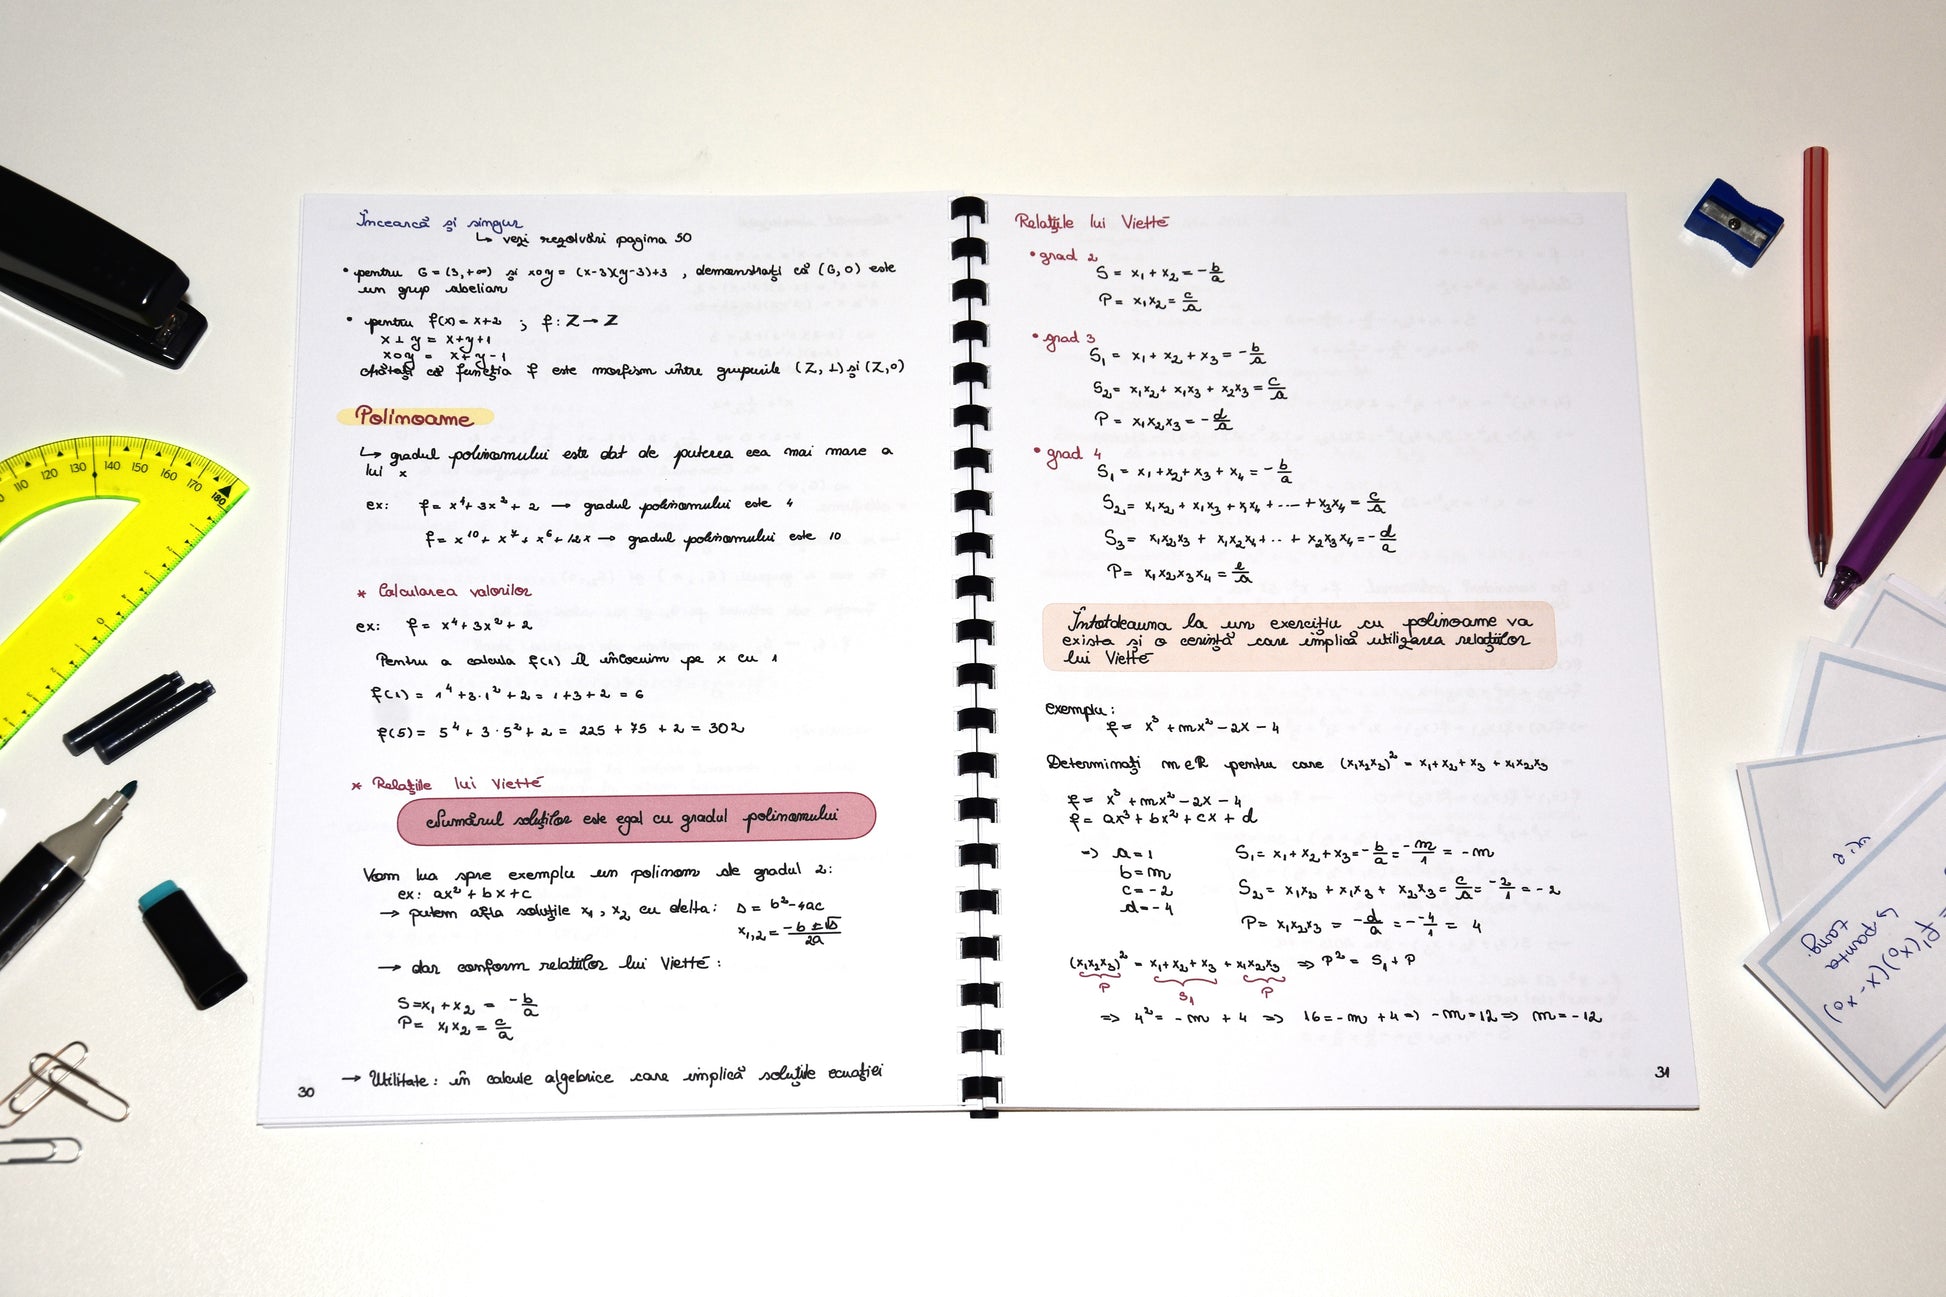 Încearcă și singur
↳ vezi rezolvări pagina 50
• pentru G = (3, +∞) și x∘y = (x-3)(y-3)+3 , demonstrați că (G, ∘) este
un grup abelian
• pentru f(x) = x+2 ; f: Z → Z
x ⊥ y = x+y+1
x∘y = x+y-1
arătați că funcția f este morfism între grupurile (Z, ⊥) și (Z, ∘)
Polinoame
↳ gradul polinomului este dat de puterea cea mai mare a
lui x
ex: f = x⁴ + 3x² + 2 → gradul polinomului este 4
f = x¹⁰ + x⁷ + x⁶ + 12x → gradul polinomului este 10
* Calcularea valorilor
ex: f = x⁴ + 3x² + 2
Pentru a calcula f(1) îl înlocuim pe x cu 1
f(1) = 1⁴ + 3·1² + 2 = 1+3+2 = 6
f(5) = 5⁴ + 3·5² + 2 = 225 + 75 + 2 = 302
* Relațiile lui Vietté
Numărul soluțiilor este egal cu gradul polinomului
Vom lua spre exemplu un polinom de gradul 2:
ex: ax² + bx + c
→ putem afla soluțiile x₁, x₂ cu delta: Δ = b² - 4ac
x₁,₂ = (-b ± √Δ)/2a
→ dar conform relatiilor lui Vietté:
S = x₁ + x₂ = -b/a
P = x₁x₂ = c/a
→ Utilitate: în calcule algebrice care implică soluțiile ecuației
30
Relațiile lui Vietté
• grad 2
S = x₁ + x₂ = -b/a
P = x₁x₂ = c/a
• grad 3
S₁ = x₁ + x₂ + x₃ = -b/a
S₂ = x₁x₂ + x₁x₃ + x₂x₃ = c/a
P = x₁x₂x₃ = -d/a
• grad 4
S₁ = x₁ + x₂ + x₃ + x₄ = -b/a
S₂ = x₁x₂ + x₁x₃ + x₁x₄ + ... + x₃x₄ = c/a
S₃ = x₁x₂x₃ + x₁x₂x₄ + .. + x₂x₃x₄ = -d/a
P = x₁x₂x₃x₄ = e/a
Întotdeauna la un exercițiu cu polinoame va
exista și o cerință care implică utilizarea relațiilor
lui Vietté
exemplu:
f = x³ + mx² - 2x - 4
Determinați m∈R pentru care (x₁x₂x₃)² = x₁+x₂+x₃ + x₁x₂x₃
f = x³ + mx² - 2x - 4
f = ax³ + bx² + cx + d
=> a = 1
b = m
c = -2
d = -4
S₁ = x₁ + x₂ + x₃ = -b/a = -m/1 = -m
S₂ = x₁x₂ + x₁x₃ + x₂x₃ = c/a = -2/1 = -2
P = x₁x₂x₃ = -d/a = --4/1 = 4
(x₁x₂x₃)² = x₁+x₂+x₃ + x₁x₂x₃ => P² = S₁ + P
P S₁ P
=> 4² = -m + 4 => 16 = -m + 4 => -m = 12 => m = -12
31
110 120 130 140 150 160 170 180
0
f'(x₀)(x-x₀)
↳ panta
tang.